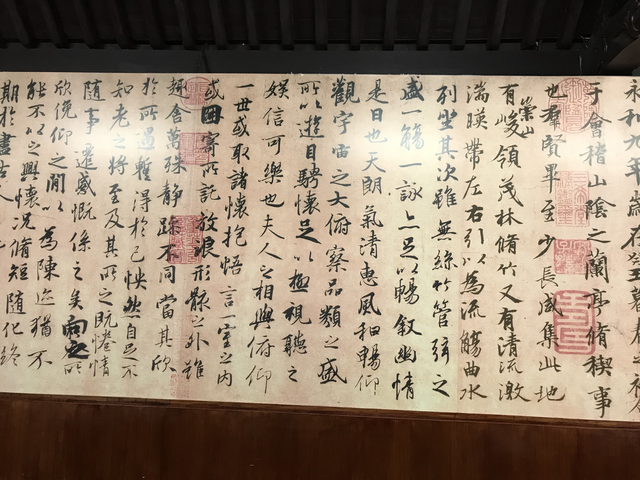 和九年歲在癸丑暮春之初
于會稽山陰之蘭亭脩稧事
也群賢畢至少長咸集此地
有崇山峻領茂林脩竹又有清流激
湍暎帶左右引以為流觴曲水
列坐其次雖無絲竹管弦之
盛一觴一詠亦足以暢敘幽情
是日也天朗氣清惠風和暢仰
觀宇宙之大俯察品類之盛
所以遊目騁懷足以極視聽之
娛信可樂也夫人之相與俯仰
一世或取諸懷抱悟言一室之內
或因寄所託放浪形骸之外雖
趣舍萬殊靜躁不同當其欣
於所遇暫得於己怏然自足不
知老之將至及其所之既惓情
隨事遷感慨係之矣向之所
欣俛仰之閒以為陳迹猶不
能不以之興懷況脩短隨化終
期於盡古人